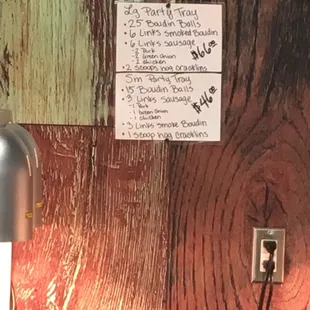 Lg Party Tray
• 25 Boudin Balls
• 6 Links Smoked Boudin
• 6 Links Sausage
- 2 Pork
- 2 Green Onion
- 2 Chicken
• 2 Scoops hog Cracklins
$66.00
Sm Party Tray
• 15 Boudin Balls
• 3 Links Sausage
- 1 Pork
- 1 Green Onion
- 1 Chicken
• 3 Links Smoke Boudin
• 1 Scoop hog Cracklins
$46.00